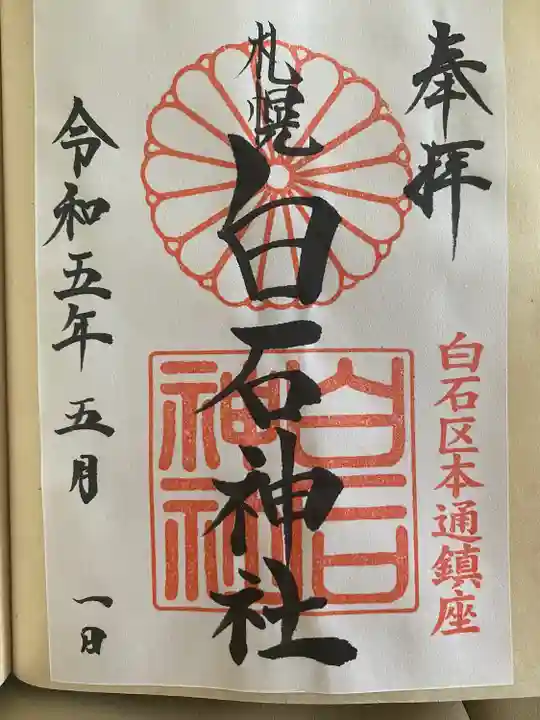 奉拝
白石区本通鎮座
札幌
白石神社
白石
神社
令和五年 五月 一日